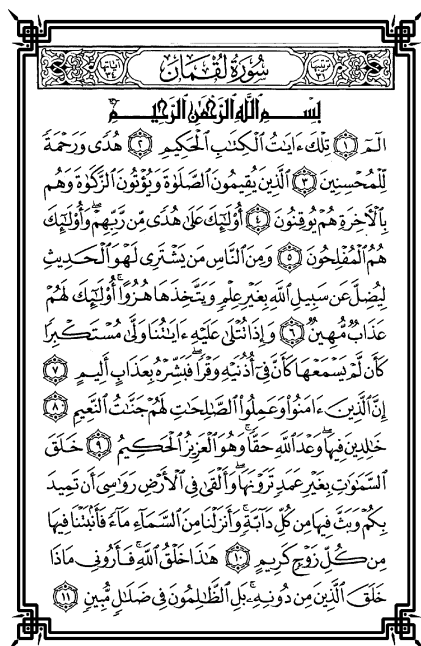 ترتيبها ٣١ سُورَةُ لُقْمَانَ آياتها ٣٤
بِسْمِ اللَّهِ الرَّحْمَٰنِ الرَّحِيمِ
الٓمٓ ١ تِلْكَ ءَايَٰتُ الْكِتَٰبِ الْحَكِيمِ ٢ هُدًى وَرَحْمَةً
لِّلْمُحْسِنِينَ ٣ الَّذِينَ يُقِيمُونَ الصَّلَوٰةَ وَيُؤْتُونَ الزَّكَوٰةَ وَهُم
بِالْءَاخِرَةِ هُمْ يُوقِنُونَ ٤ أُو۟لَٰٓئِكَ عَلَىٰ هُدًى مِّن رَّبِّهِمْ ۖ وَأُو۟لَٰٓئِكَ
هُمُ الْمُفْلِحُونَ ٥ وَمِنَ النَّاسِ مَن يَشْتَرِى لَهْوَ الْحَدِيثِ
لِيُضِلَّ عَن سَبِيلِ اللَّهِ بِغَيْرِ عِلْمٍ وَيَتَّخِذَهَا هُزُوًا ۚ أُو۟لَٰٓئِكَ لَهُمْ
عَذَابٌ مُّهِينٌ ٦ وَإِذَا تُتْلَىٰ عَلَيْهِ ءَايَٰتُنَا وَلَّىٰ مُسْتَكْبِرًا
كَأَن لَّمْ يَسْمَعْهَا كَأَنَّ فِىٓ أُذُنَيْهِ وَقْرًا ۖ فَبَشِّرْهُ بِعَذَابٍ أَلِيمٍ ٧
إِنَّ الَّذِينَ ءَامَنُوا۟ وَعَمِلُوا۟ الصَّٰلِحَٰتِ لَهُمْ جَنَّٰتُ النَّعِيمِ ٨
خَٰلِدِينَ فِيهَا ۖ وَعْدَ اللَّهِ حَقًّا ۚ وَهُوَ الْعَزِيزُ الْحَكِيمُ ٩ خَلَقَ
السَّمَٰوَٰتِ بِغَيْرِ عَمَدٍ تَرَوْنَهَا ۖ وَأَلْقَىٰ فِى الْأَرْضِ رَوَٰسِىَ أَن تَمِيدَ
بِكُمْ وَبَثَّ فِيهَا مِن كُلِّ دَآبَّةٍ ۚ وَأَنزَلْنَا مِنَ السَّمَآءِ مَآءً فَأَنۢبَتْنَا فِيهَا
مِن كُلِّ زَوْجٍ كَرِيمٍ ١٠ هَٰذَا خَلْقُ اللَّهِ فَأَرُونِى مَاذَا
خَلَقَ الَّذِينَ مِن دُونِهِۦ ۚ بَلِ الظَّٰلِمُونَ فِى ضَلَٰلٍ مُّبِينٍ ١١